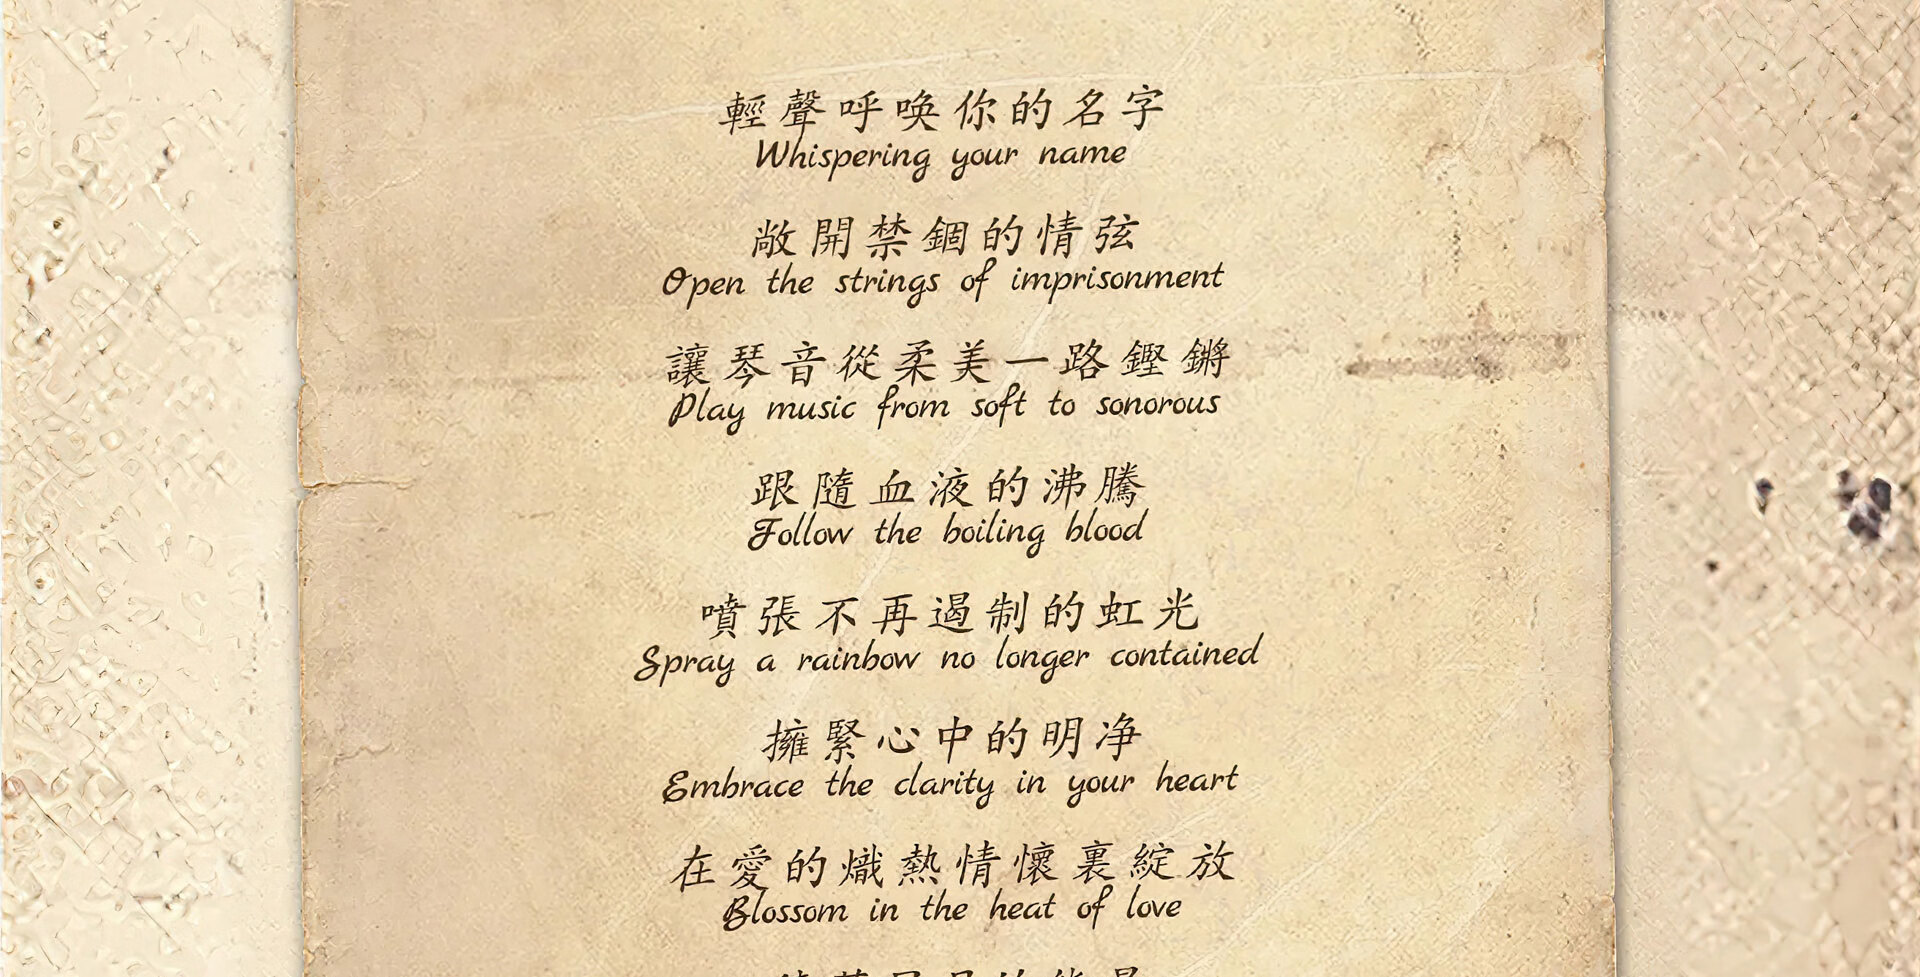 輕聲呼喚你的名字
Whispering your name
敞開禁錮的情弦
Open the strings of imprisonment
讓琴音從柔美一路鏗鏘
Play music from soft to sonorous
跟隨血液的沸騰
Follow the boiling blood
噴張不再遏制的虹光
Spray a rainbow no longer contained
擁緊心中的明净
Embrace the clarity in your heart
在愛的熾熱情懷裏綻放
Blossom in the heat of love